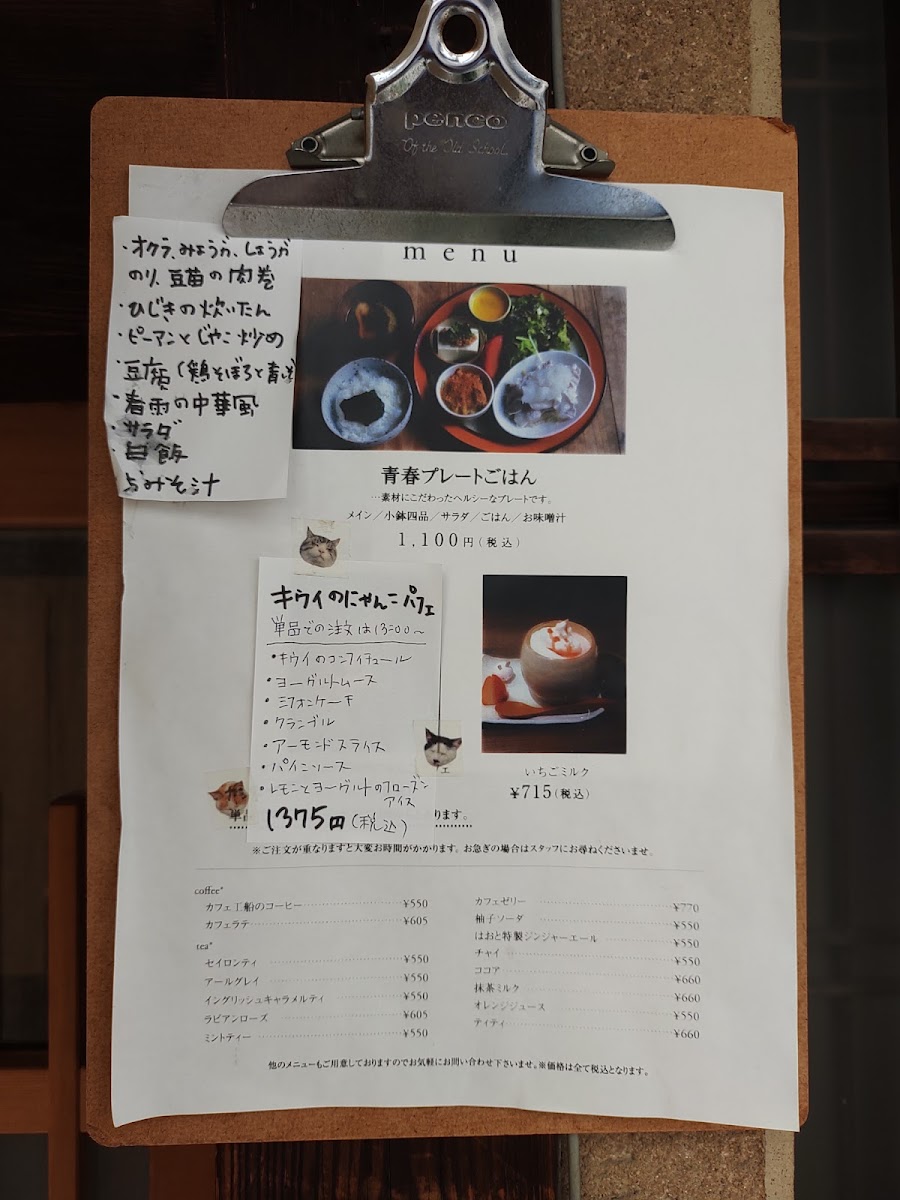 penco
Of the Old School
menu
・オクラ、みょうが、しょうが
のり、豆苗の肉巻
・ひじきの炊いたん
・ピーマンとじゃこ炒め
・豆腐(鶏そぼろと青じそ
・春雨の中華風
・サラダ
・白飯
・おみそ汁
青春プレートごはん
…素材にこだわったヘルシーなプレートです。
メイン／小鉢四品／サラダ／ごはん／お味噌汁
1,100円(税込)
キウイのにゃんこパフェ
単品での注文は13:00～
・キウイのコンフィチュール
・ヨーグルトムース
・シフォンケーキ
・クランブル
・アーモンドスライス
・パインソース
・レモンとヨーグルトのフローズン
アイス
1375円(税込)
いちごミルク
¥715(税込)
ります。
※ご注文が重なりますと大変お時間がかかります。お急ぎの場合はスタッフにお尋ねくださいませ。
coffee*
カフェ工船のコーヒー ¥550
カフェラテ ¥605
tea*
セイロンティ ¥550
アールグレイ ¥550
イングリッシュキャラメルティ ¥550
ラビアンローズ ¥605
ミントティー ¥550
カフェゼリー ¥770
柚子ソーダ ¥550
はおと特製ジンジャーエール ¥550
チャイ ¥550
ココア ¥660
抹茶ミルク ¥660
オレンジジュース ¥550
ティティ ¥660
他のメニューもご用意しておりますのでお気軽にお問い合わせ下さいませ。※価格は全て税込となります。